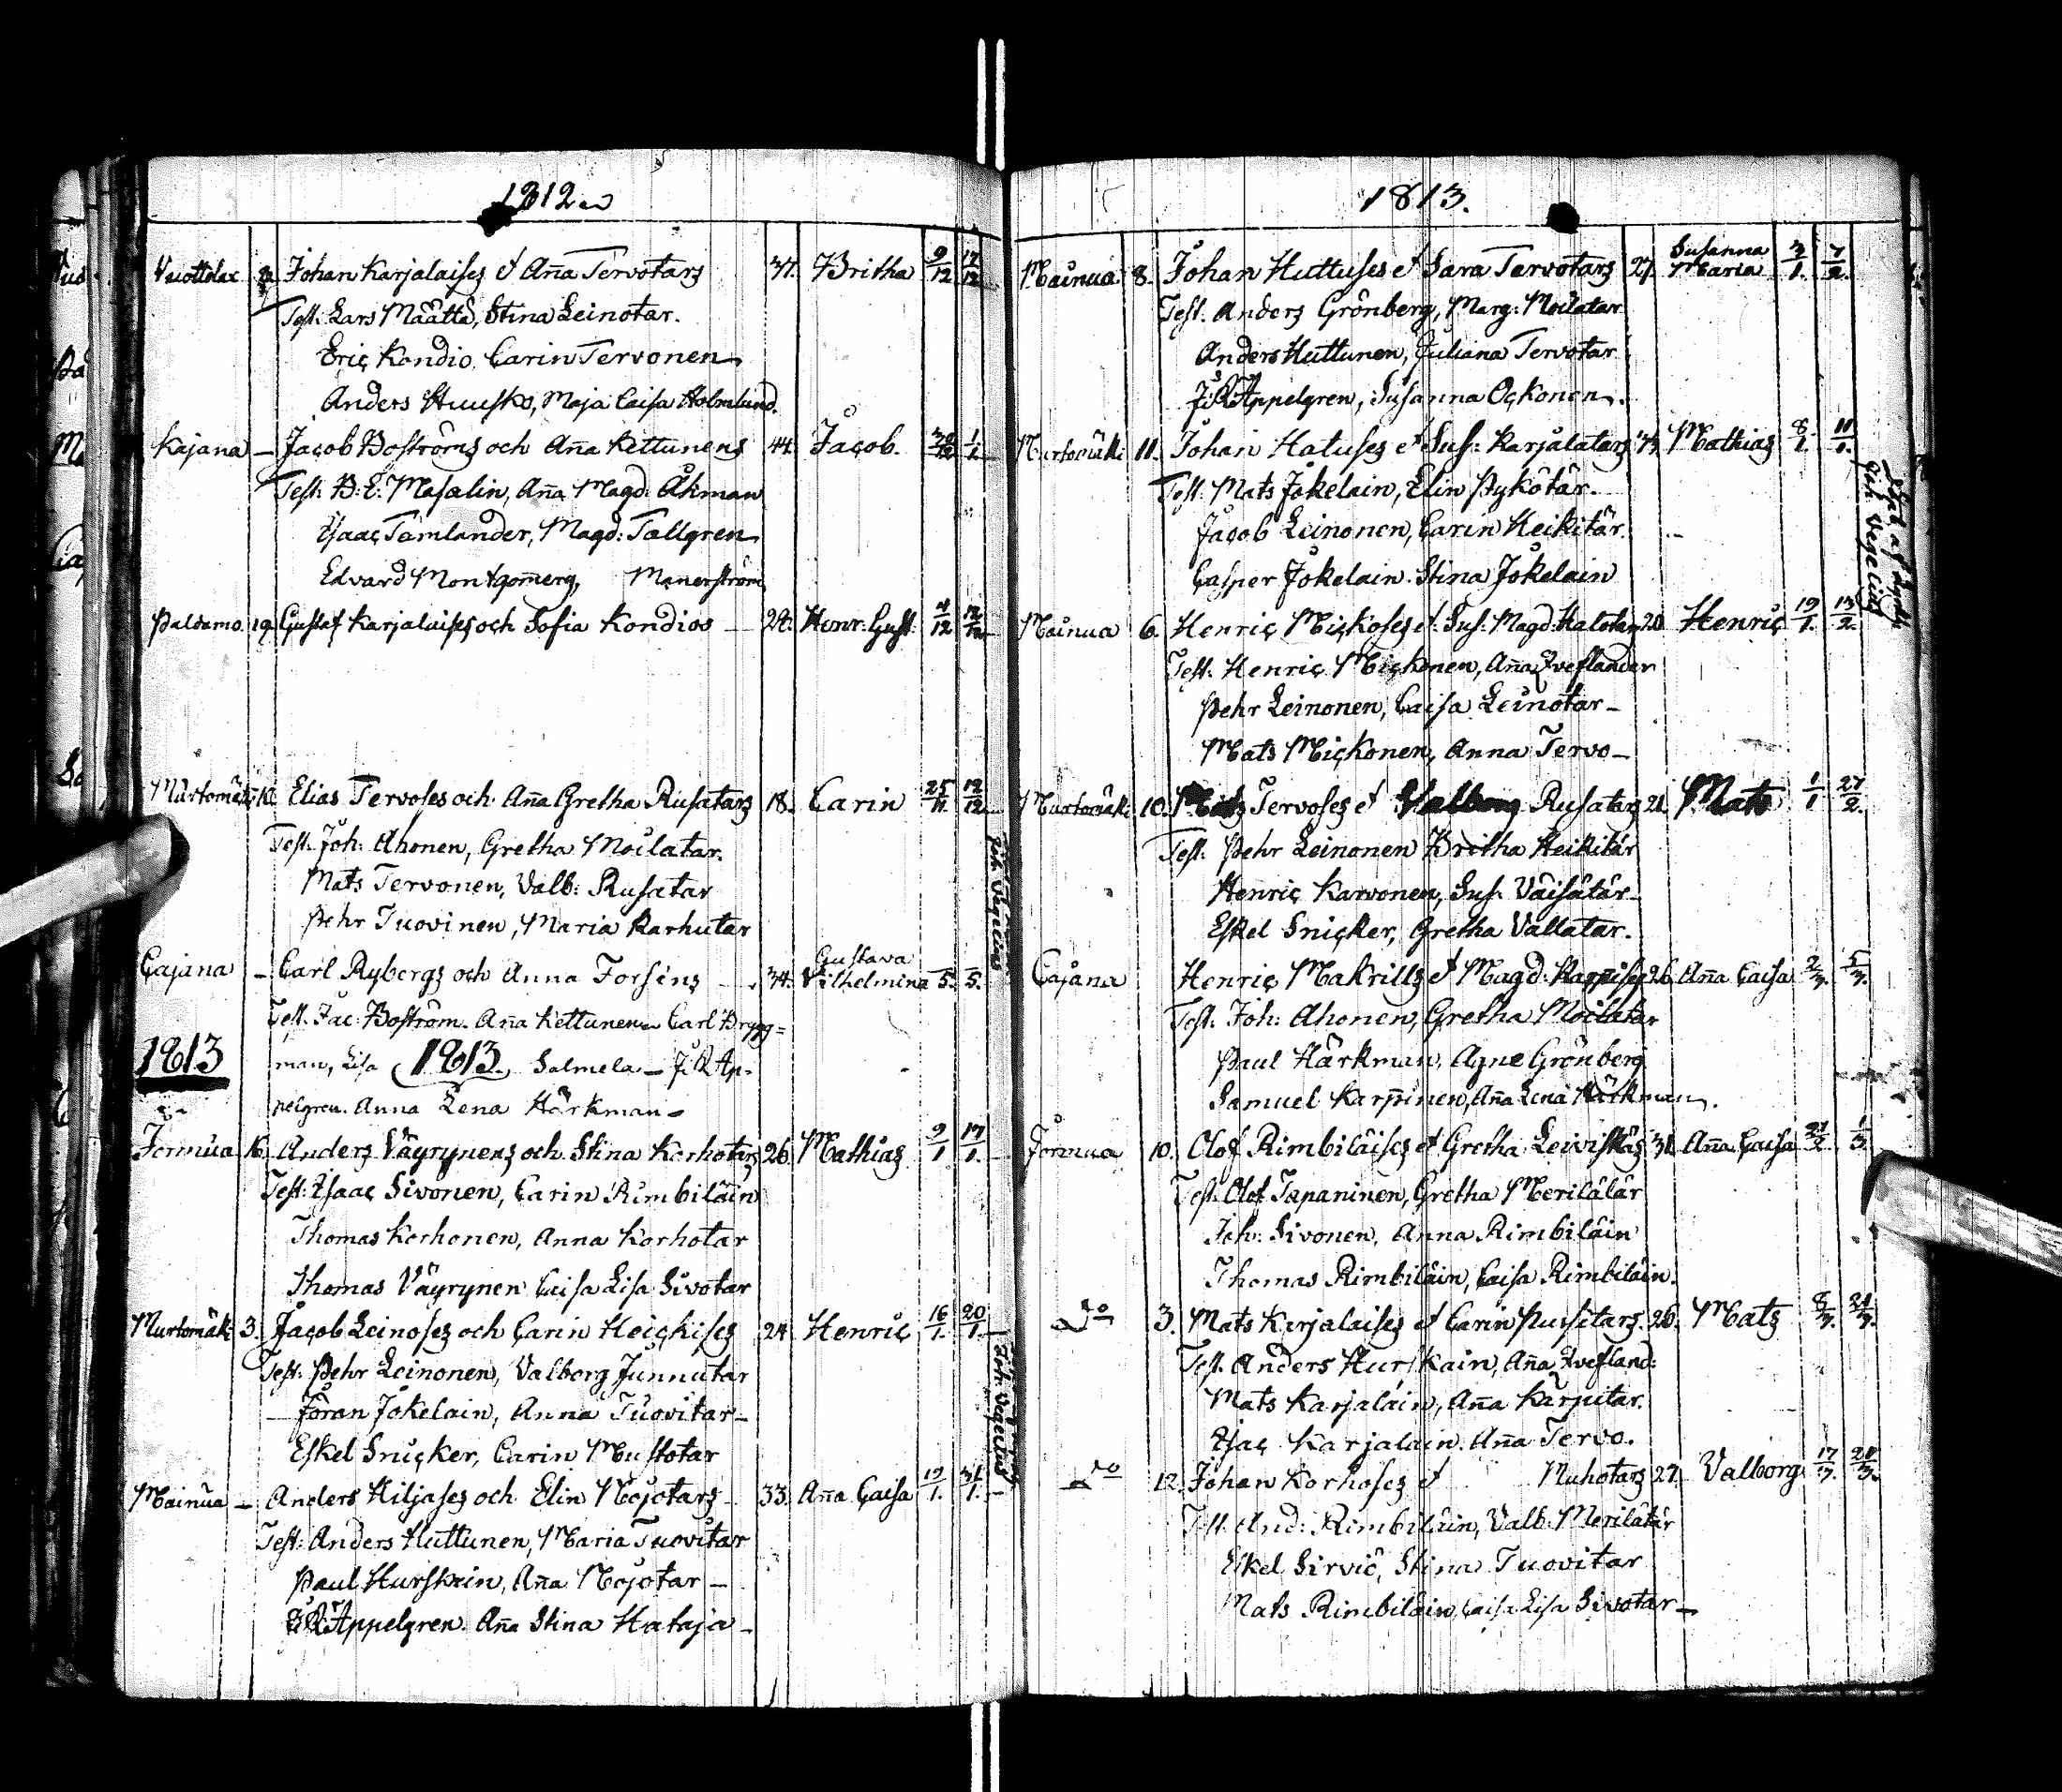 1812
Vuottolax Johan Karjalaises et Aña Tervotars 37. Britha 9/12 17/12
Test: Lars Määttä, Stina Leinotar.
Eric Kondio, Carin Tervonen
Anders Huusko, Maja Caisa Holmlund.
Kajana – Jacob Boströms och Aña Kettunens 44. Jacob. 1/1
Test: B: E: Masalin, Aña Magd: Åkman
Isaac Tamlander, Magd: Tallgren
Edvard Montgomerg, Manerström
Paldamo. 19. Gustaf Karjalaises och Sofia Kondios – 24. Henr: Gust: 4/12 12/12
Murtomäki Elias Tervoses och Aña Gretha Rusatars 18. Carin 25/11. 12/12
Test. Joh: Ahonen, Gretha Moilatar.
Mats Tervonen, Valb: Rusatar
Pehr Tuovinen, Maria Karhutar
Joh: Vegelius
Cajana – Carl Rybergs och Anna Forsens – 34. Gustava Vilhelmina 5. 5.
Test. Jac: Boström. Aña Kettunen – Carl Brygg=
1813 man, Lisa 1813. Salmela – J: R Ap-
pelgren. Anna Lena Härkman –
Jormua 16. Anders Väyrynens och Stina Korhotars 26. Mathias 9/1 17/1.
Test: Isaac Sivonen, Carin Rimbiläin
Thomas Korhonen, Anna Korhotar
Thomas Väyrynen Caisa Lisa Sivotar
Murtomäki 3. Jacob Leinoses och Carin Heickises 24 Henric 16/1. 20/1.
Test: Pehr Leinonen, Valborg Junnutar
Jöran Jokelain, Anna Tuovitar –
Eskel Snicker, Carin Mustotar
Joh: Vegelius
Mainua – Anders Kiljases och Elin Mojotars 33. Aña Caisa 19/1. 31/1.
Test: Anders Huttunen, Maria Tuovitar
Paul Hurskain, Aña Mojotar –
J: R: Appelgren. Aña Stina Hataja –
1813.
Mainua. 8. Johan Huttuses et Sara Tervotars 27. Susanna Maria 3/1. 7/2.
Test. Anders Grönberg, Marg: Moilatar
Anders Huttunen, Juliana Tervotar
J: R Appelgren, Susanna Ockonen.
Murtomäki 11. Johan Hatuses et Sus: Karjalatars Mathias 8/1. 11/1.
Test: Mats Jokelain, Elin Pykötär.
Jacob Leinonen, Carin Heikitär
Casper Jokelain. Stina Jokelain
Joh Vegelius
Mainua 6. Henric Mickoses et: Sus: Magd: Halotar 20. Henric 19/1. 13/2.
Test: Henric Mickonen, Aña Tveflander
Pehr Leinonen, Caisa Leinotar –
Mats Mickonen, Anna Tervo –
Murtomäki 10. Mats Tervoses et Valborg Rusatars 21. Mats 1/1 27/2.
Test. Pehr Leinonen Britha Heikitär
Henric Karvonen, Sus: Väisätär
Eskel Snicker, Gretha Vallatar.
Cajana Henric Makrills et Magd: Karpises 26. Aña Caisa 2/3. 5/3.
Test: Joh: Ahonen, Gretha Moilatar
Paul Härkman, Agne Grönberg
Samuel Karpinen, Aña Lena Härkman.
Jormua 10. Olof Rimbiläises et Gretha Leiviskäs 31. Aña Caisa 21/2. 1/3.
Test. Olof Tapaninen, Gretha Merilätär
Joh: Sivonen, Anna Rimbiläin
Thomas Rimbiläin, Caisa Rimbiläin.
do 3. Mats Karjalaises et Carin Pursitars. 26. Mats 8/3. 21/3.
Test. Anders Hurskain, Aña Tvefland:
Mats Karjalain, Aña Karputar.
Isac Karjalain. Aña Tervo.
do 12. Johan Korhoses et Nuhotars 27. Valborg 17/3. 28/3.
Test. And: Rimbiläin, Valb: Merilätär
Eskel Sirviö, Stina Tuovitar
Mats Rimbiläin, Caisa Lisa Sivotar –